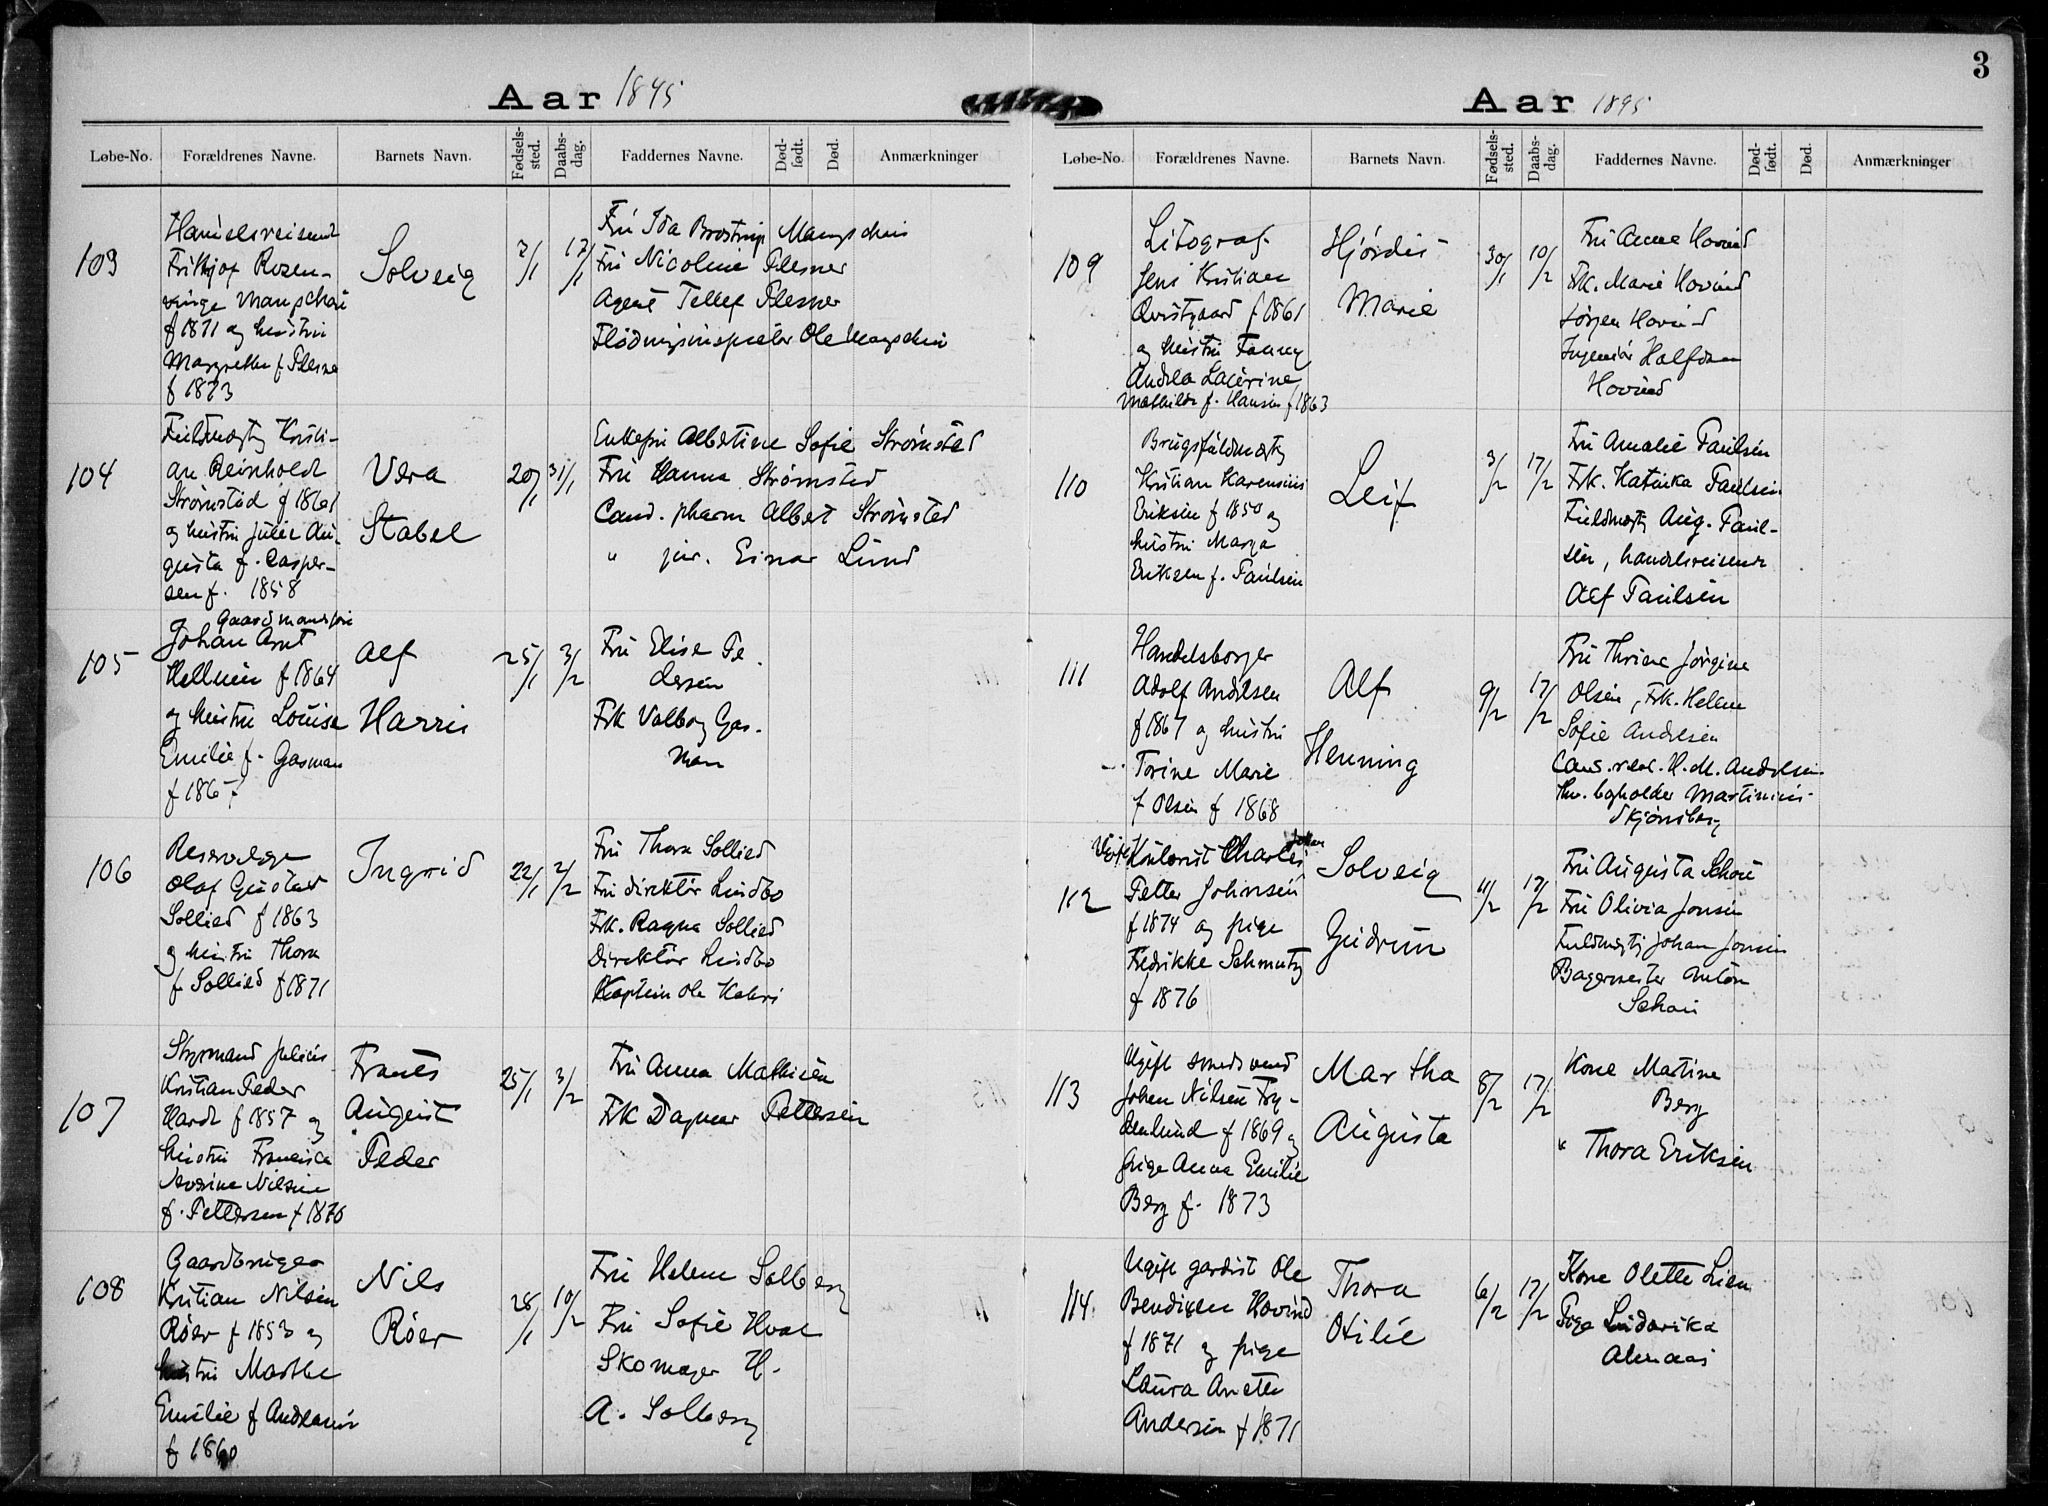 Aar 1895
Løbe-No. Forældrenes Navne. Barnets Navn. Fødsels-sted. Daabs-dag. Faddernes Navne. Død-født. Død. Anmærkninger
103
Handelsreisend
Frithjof Rosen-
vinge
f 1871 og hustru
Margrethe f Plesner
f 1873
Solveig
2/1
17/1
Fru Ida Brostrup
Fru Nicoline Plesner
Agent Tellef Plesner
Flødningsinspektør Ole
104
Fuldmægtig Kristi-
an Reinholdt
Strømsted f 1861
og hustru Julie Au-
gusta f. Casper-
sen f. 1858
Vera
Stabel
20/1
31/1
Enkefru Albertine Sofie Strømsted
Fru Hanna Strømsted
Cand. pharm Albert Strømsted
" jur. Einar Lund
105
Gaardmand
Johan Arnt
f 1864
og hustru Louise
Emilie f. Gasman
Alf
Harris
25/1
3/2
Fru Elise Pe
dersen
Frk Valborg Gas-
man
106
Reservelæge
Olaf Gustav
Sollied f 1863
og hustru Thora
f Sollied f 1871
Ingrid
22/1
2/2
Fru Thora Sollied
Fru direktør Lindbo
Frk. Ragna Sollied
Direktør Lindbo
Kaptein Ole
107
Styrmand Julius
Kristian Peder
Hardt f 1857 og
hustru Francisca
Nilsine
f. Pettersen f 1870
Frants
August
Peder
25/1
3/2
Fru Anna Mathisen
Frk Dagmar Pettersen
108
Gaardbruger
Kristian Nilsen
Röer f 1853 og
hustru Marthe
Emilie f Andersen
f 1860
Nils
Röer
28/1
10/2
Fru Helene Solberg
Fru Sofie Hval
Skomager H.
A. Solberg
3
Aar 1895
Løbe-No. Forældrenes Navne. Barnets Navn. Fødsels-sted. Daabs-dag. Faddernes Navne. Død-født. Død. Anmærkninger
109
Litograf
Jens Kristian
Qvistgaard f 1861
og hustru Fanny
Andrea
Mathilde f. Hansen f 1863
Hjördis
Marie
30/1
10/2
Fru Anne Hovind
Frk. Marie Hovind
Jörgen Hovind
Ingeniör Halfdan
Hovind
110
Brugsfuldmægtig
Kristian Karenius
Eriksen f 1850 og
hustru Marga
Eriksen f. Paulsen
Leif
3/2
17/2
Fru Amalie Paulsen
Frk. Katinka Paulsen
Fuldmægtig Aug. Paul-
sen, handelsreisende
Alf Paulsen
111
Handelsborger
Adolf Andresen
f 1867 og hustru
Torine Marie
f Olsen f 1868
Alf
Henning
9/2
17/2
Fru Thrine Jörgine
Olsen, Frk. Helene
Sofie Andresen
Cand. real. H. M. Andresen
bogholder Martinius
Skjönsberg
112
Ugift Kontorist Charles Johan
Petter Johnsen
f 1874 og pige
Fredrikke Schmutz
f 1876
Solveig
Gudrun
11/2
17/2
Fru Augusta Schou
Fru Olivia Jonsen
Fuldmægtig Johan Jonsen
Bagermester Anton
Schou
113
Ugift smedsvend
Johan Nilsen Fry-
denlund f 1869 og
pige Anna Emilie
Berg f. 1873
Martha
Augusta
8/2
17/2
Kone Martine
Berg
" Thora Eriksen
114.
Ugift gardist Ole
Bendixen Hovind
f 1871 og pige
Laura Anette
Andersen f 1871
Thora
Otilie
6/2
17/2
Kone Olette Lien
Pige Ludovika